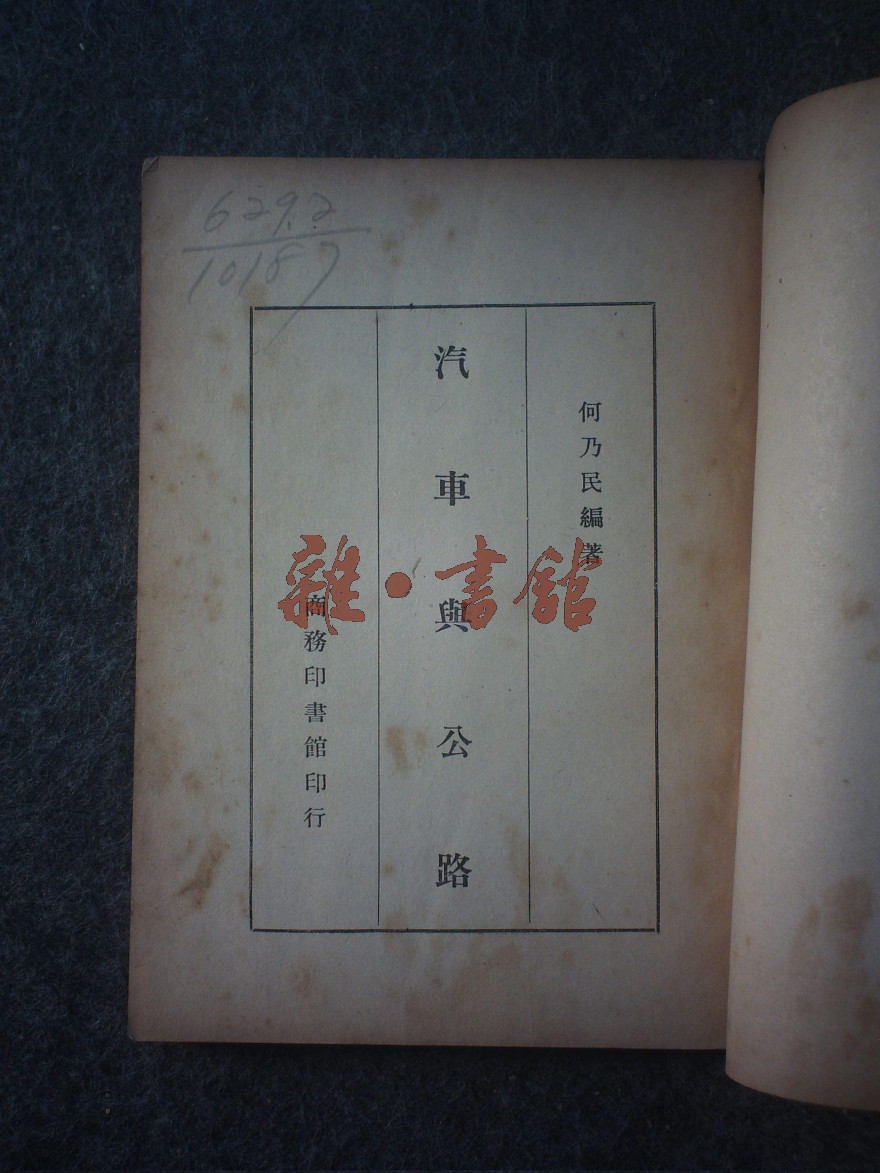 6292
10187
何乃民編著
汽車與公路
商務印書館印行
雜·書館